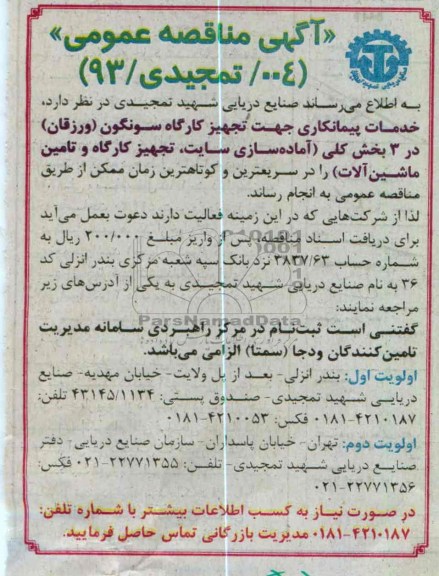 «آگهی مناقصه عمومی»
(۰۰۴/ تمجیدی/۹۳)
به اطلاع می‌رساند صنایع دریایی شهید تمجیدی در نظر دارد،
خدمات پیمانکاری جهت تجهیز کارگاه سونگون (ورزقان)
در ۳ بخش کلی (آماده‌سازی سایت، تجهیز کارگاه و تامین
ماشین‌آلات) را در سریعترین و کوتاهترین زمان ممکن از طریق
مناقصه عمومی به انجام رساند.
لذا از شرکت‌هایی که در این زمینه فعالیت دارند دعوت بعمل می‌آید
برای دریافت اسناد مناقصه، پس از واریز مبلغ ۲۰۰/۰۰۰ ریال به
شماره حساب ۳۸۳۷/۶۳ نزد بانک سپه شعبه مرکزی بندر انزلی کد
۳۶ به نام صنایع دریایی شهید تمجیدی به یکی از آدرس‌های زیر
مراجعه نمایند:
ParsNamadData
گفتنی است ثبت‌نام در مرکز راهبردی سامانه مدیریت
تامین‌کنندگان ودجا (سمتا) الزامی می‌باشد.
اولویت اول: بندر انزلی- بعد از پل ولایت- خیابان مهدیه- صنایع
دریایی شهید تمجیدی- صندوق پستی: ۴۳۱۴۵/۱۱۳۴ تلفن:
۰۱۸۱-۴۲۱۰۱۸۷ فکس: ۰۱۸۱-۴۲۱۰۰۵۳
اولویت دوم: تهران- خیابان پاسداران- سازمان صنایع دریایی- دفتر
صنایع دریایی شهید تمجیدی- تلفن: ۰۲۱-۲۲۷۷۱۳۵۵ فکس:
۰۲۱-۲۲۷۷۱۳۵۶
در صورت نیاز به کسب اطلاعات بیشتر با شماره تلفن:
۰۱۸۱-۴۲۱۰۱۸۷ مدیریت بازرگانی تماس حاصل فرمایید.